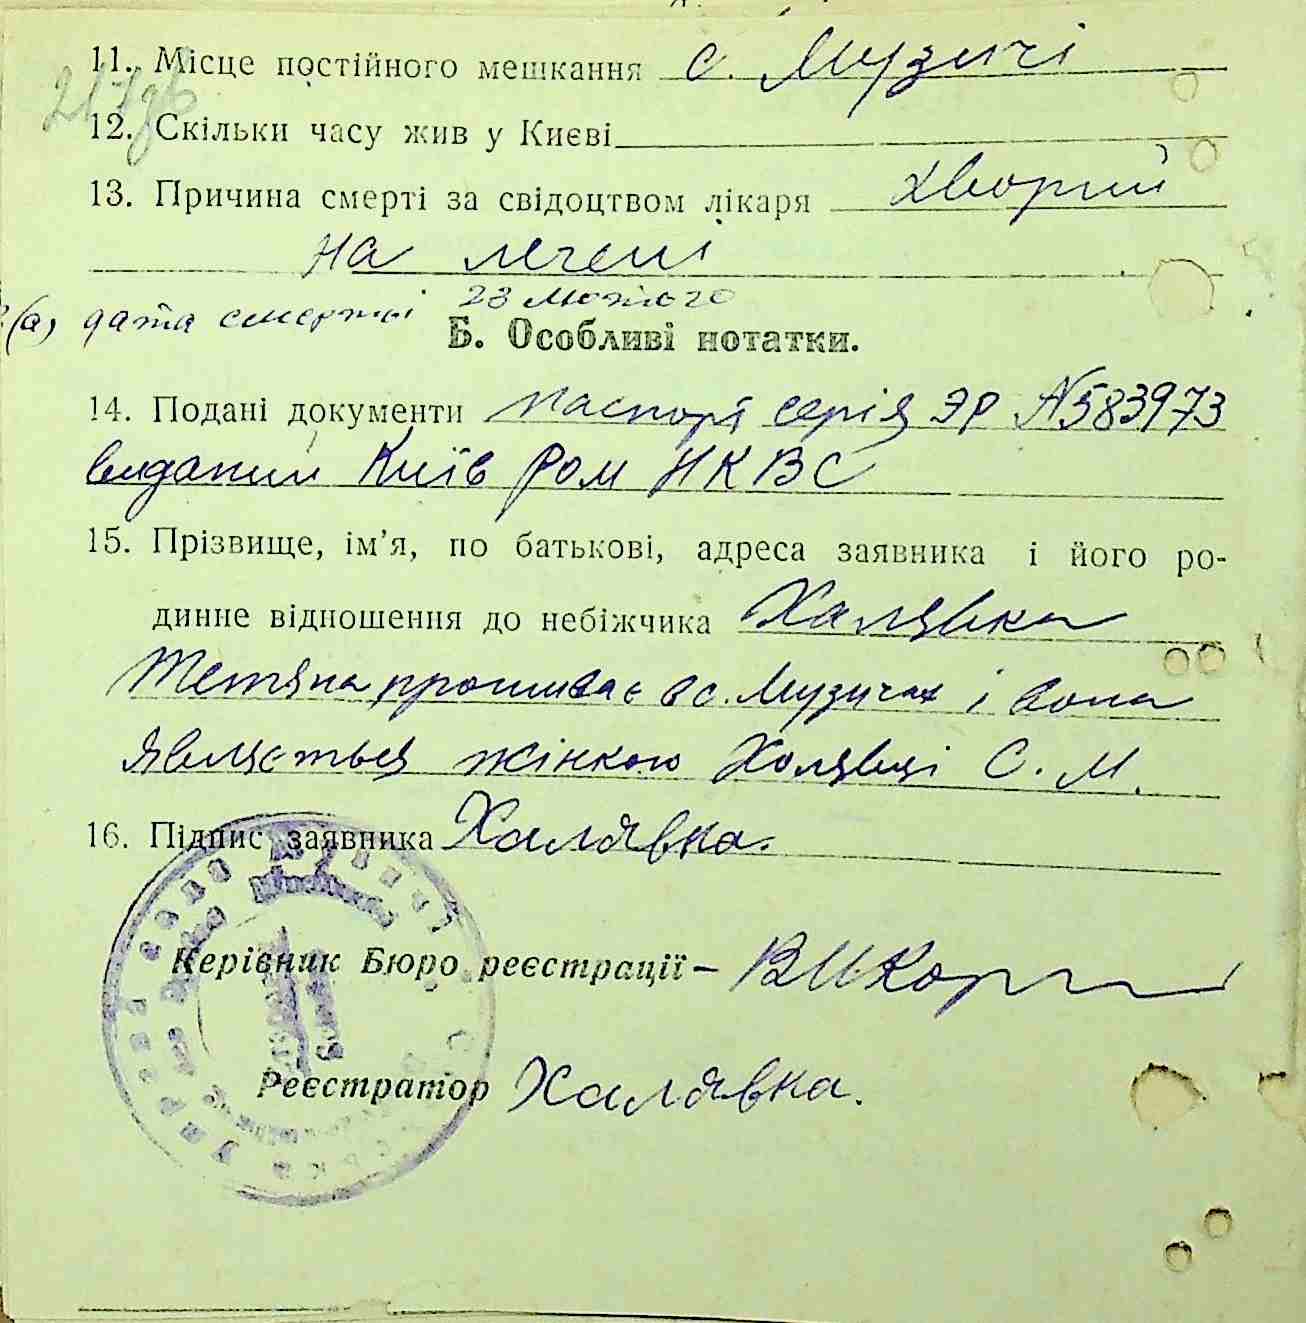 11. Місце постійного мешкання с. Музичі
12. Скільки часу жив у Києві
13. Причина смерті за свідоцтвом лікаря хворий
на легені
(а) дата смерті 23 лютого
Б. Особливі нотатки.
14. Подані документи паспорт серія ЭР №583973
виданий Київ Ром НКВС
15. Прізвище, ім'я, по батькові, адреса заявника і його ро-
динне відношення до небіжчика Халявка
Тетяна проживає в с. Музичах і вона
являється жінкою Холявці С. М.
16. Підпис заявника Халявка.
Керівник Бюро реєстрації –
Реєстратор Халявка.